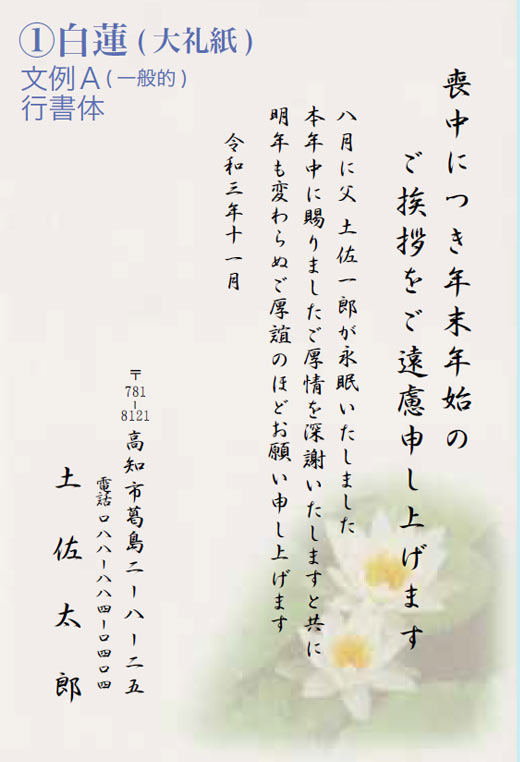 ①白蓮(大礼紙)
文例A(一般的)
行書体
喪中につき年末年始の
ご挨拶をご遠慮申し上げます
八月に父 土佐一郎が永眠いたしました
本年中に賜りましたご厚情を深謝いたしますと共に
明年も変わらぬご厚誼のほどお願い申し上げます
令和三年十一月
〒781-8121 高知市葛島二ー八ー二五
電話〇八八ー八八四ー〇四〇四
土佐太郎